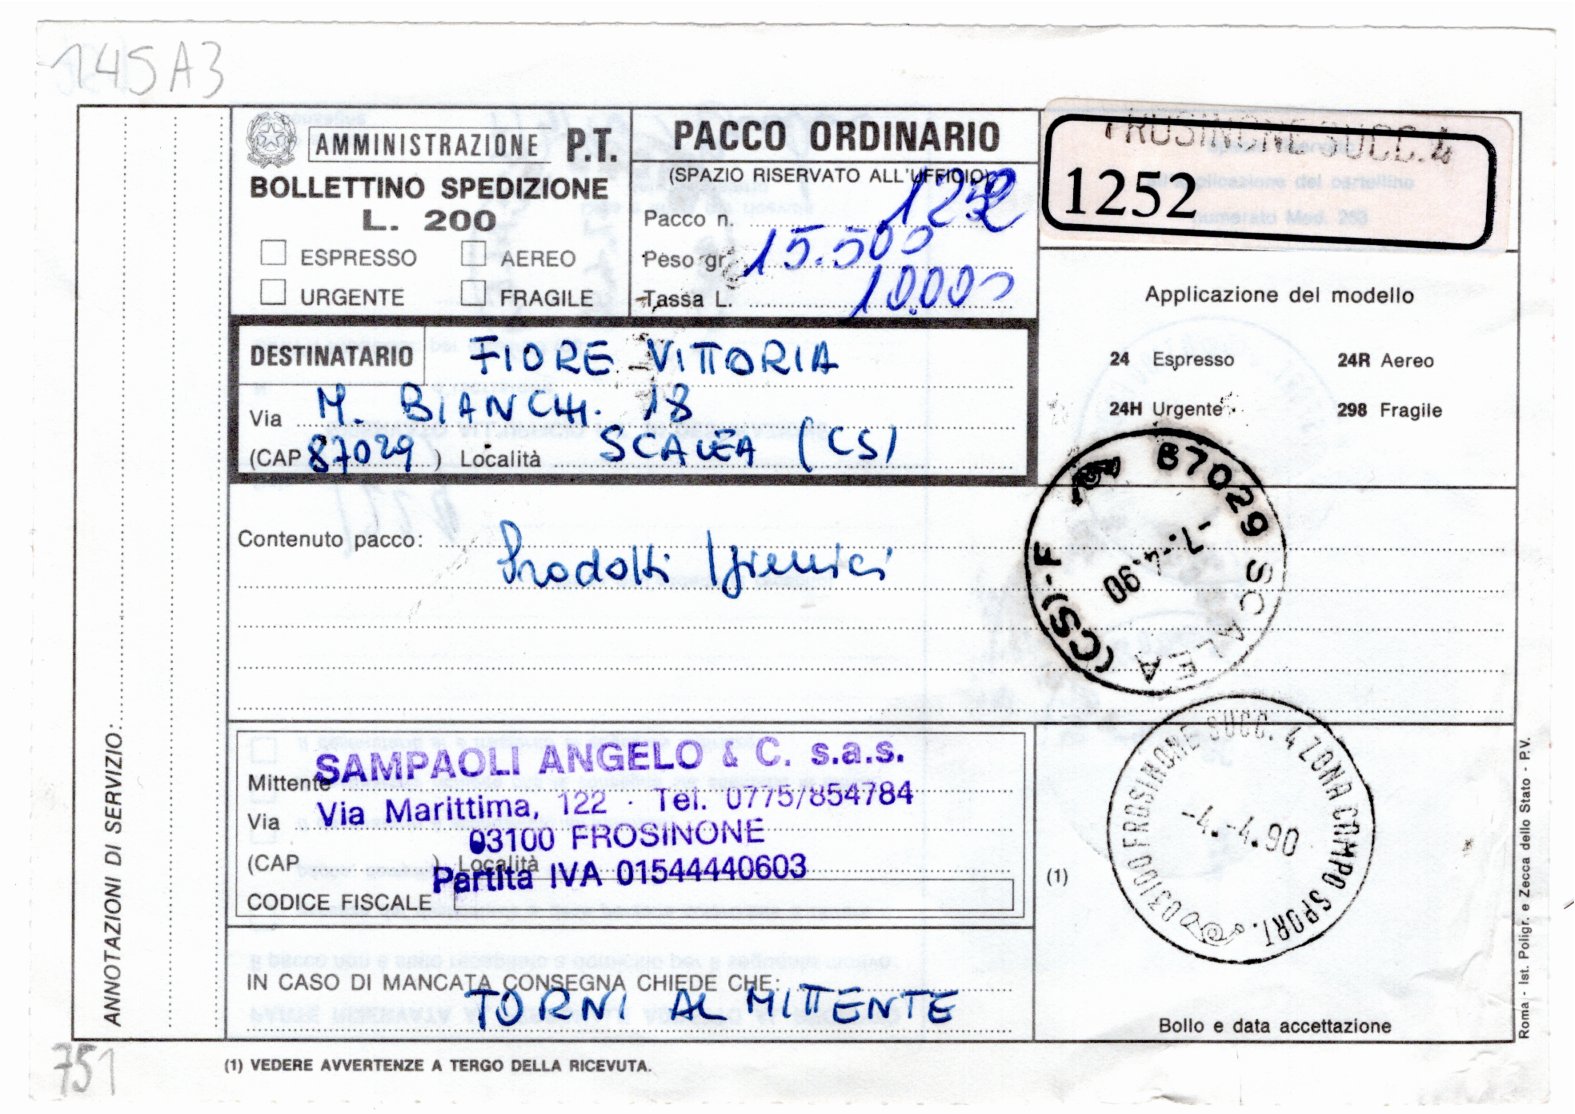 145A3
AMMINISTRAZIONE P.T.
BOLLETTINO SPEDIZIONE
L. 200
ESPRESSO AEREO
URGENTE FRAGILE
PACCO ORDINARIO
(SPAZIO RISERVATO ALL'UFFICIO)
Pacco n. 1252
Peso gr. 15.500
Tassa L. 10.000
FROSINONE SUCC. 4
1252
Applicazione del modello
24 Espresso 24R Aereo
24H Urgente 298 Fragile
DESTINATARIO FIORE VITTORIA
Via M. BIANCHI 18
(CAP 87029) Località SCALEA (CS)
87029 SCALEA (CS)-F
-7.-4.90
Contenuto pacco: Prodotti Igienici
Mittente SAMPAOLI ANGELO & C. s.a.s.
Via Via Marittima, 122 · Tel. 0775/854784
03100 FROSINONE
(CAP ) Località
Partita IVA 01544440603
CODICE FISCALE
03100 FROSINONE SUCC. 4 ZONA CAMPO SPORT.
-4.-4.90
(1)
Bollo e data accettazione
IN CASO DI MANCATA CONSEGNA CHIEDE CHE:
TORNI AL MITTENTE
(1) VEDERE AVVERTENZE A TERGO DELLA RICEVUTA.
ANNOTAZIONI DI SERVIZIO:
Roma - Ist. Poligr. e Zecca dello Stato - P.V.
751